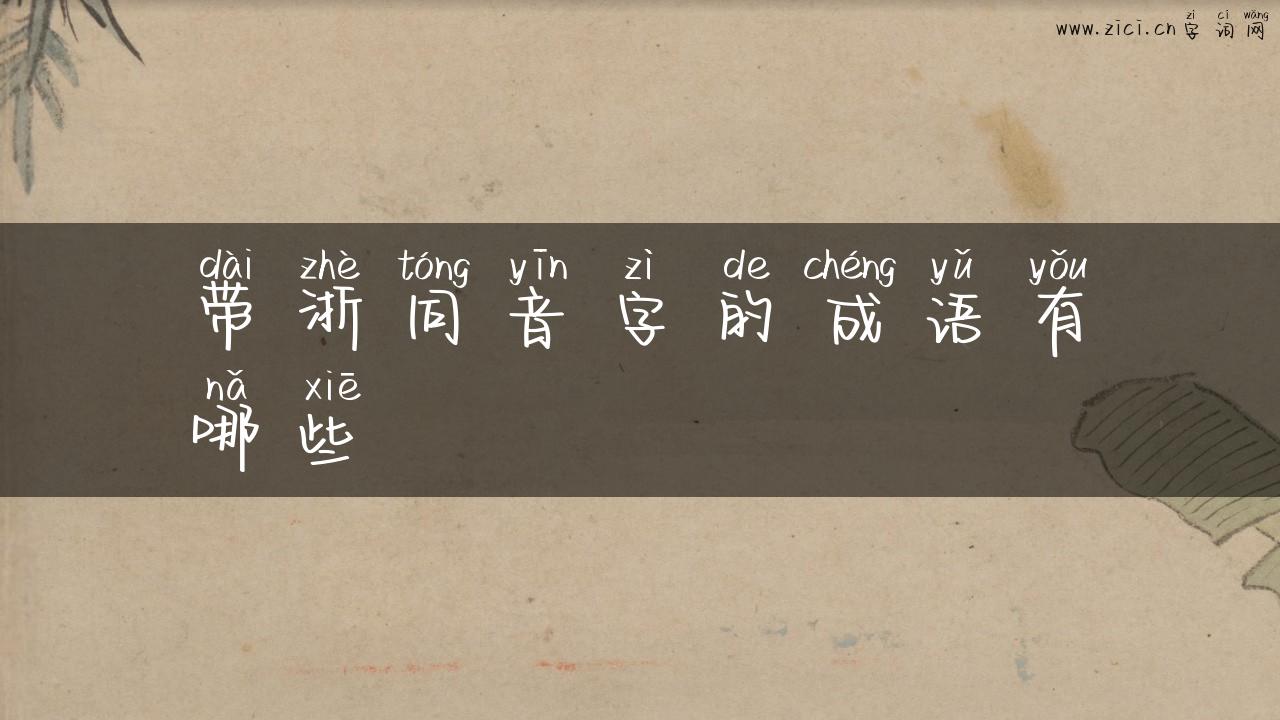 zì cí wǎng
www.zici.cn 字词网
dài zhè tóng yīn zì de chéng yǔ yǒu
带浙同音字的成语有
nǎ xiē
哪些